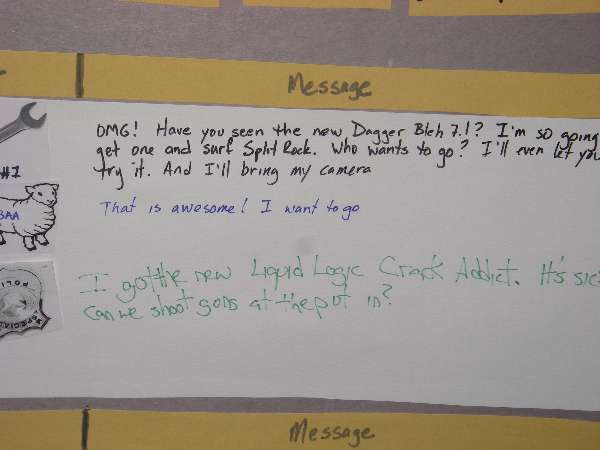 Message
OMG! Have you seen the new Dagger Bleh 7.1? I'm so going
get one and surf Split Rock. Who wants to go? I'll even let you
try it. And I'll bring my camera
#1
BAA
That is awesome! I want to go
POLI
SPECIAL
I got the new Liquid Logic Crack Addict. It's sic
Can we shoot goons at the put in?
Message